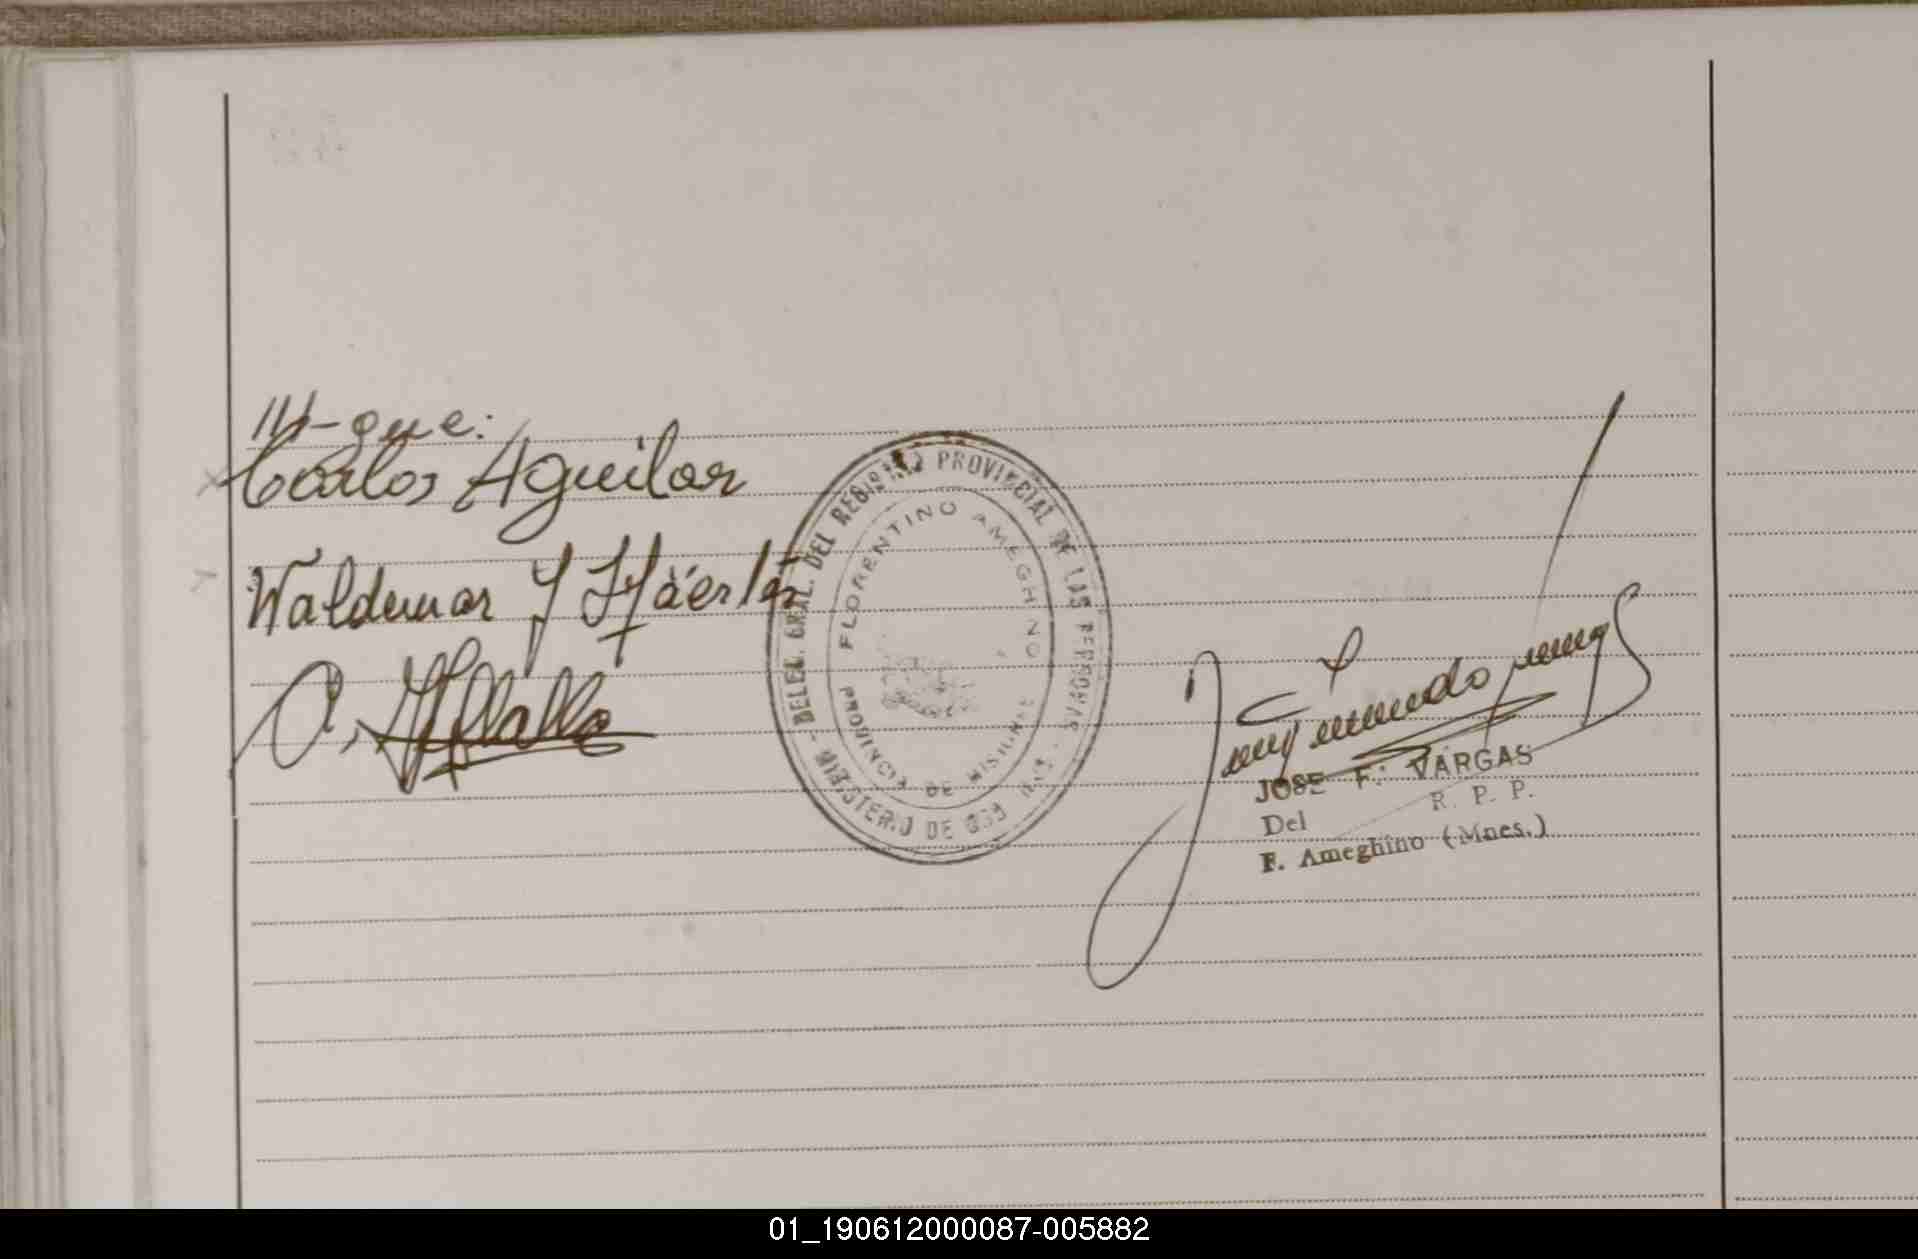 ///-que:
Carlos Aguilar
Waldemar J Häerter
DELEG. GRAL. DEL REGISTRO PROVINCIAL DE LAS PERSONAS
FLORENTINO AMEGHINO
PROVINCIA DE MISIONES
MINISTERIO DE GOB
JOSE F. VARGAS
Del R. P. P.
F. Ameghino (Mnes.)
01_190612000087-005882